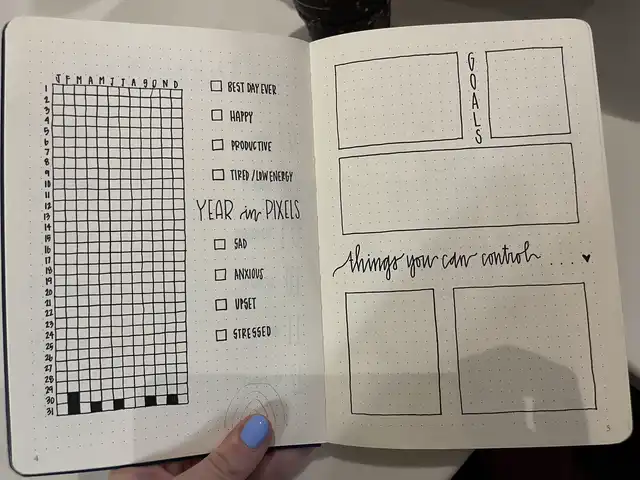 J F M A M J J A S O N D
1
2
3
4
5
6
7
8
9
10
11
12
13
14
15
16
17
18
19
20
21
22
23
24
25
26
27
28
29
30
31
BEST DAY EVER
HAPPY
PRODUCTIVE
TIRED / LOW ENERGY
YEAR in PIXELS
SAD
ANXIOUS
UPSET
STRESSED
4
GOALS
things you can control ....
5